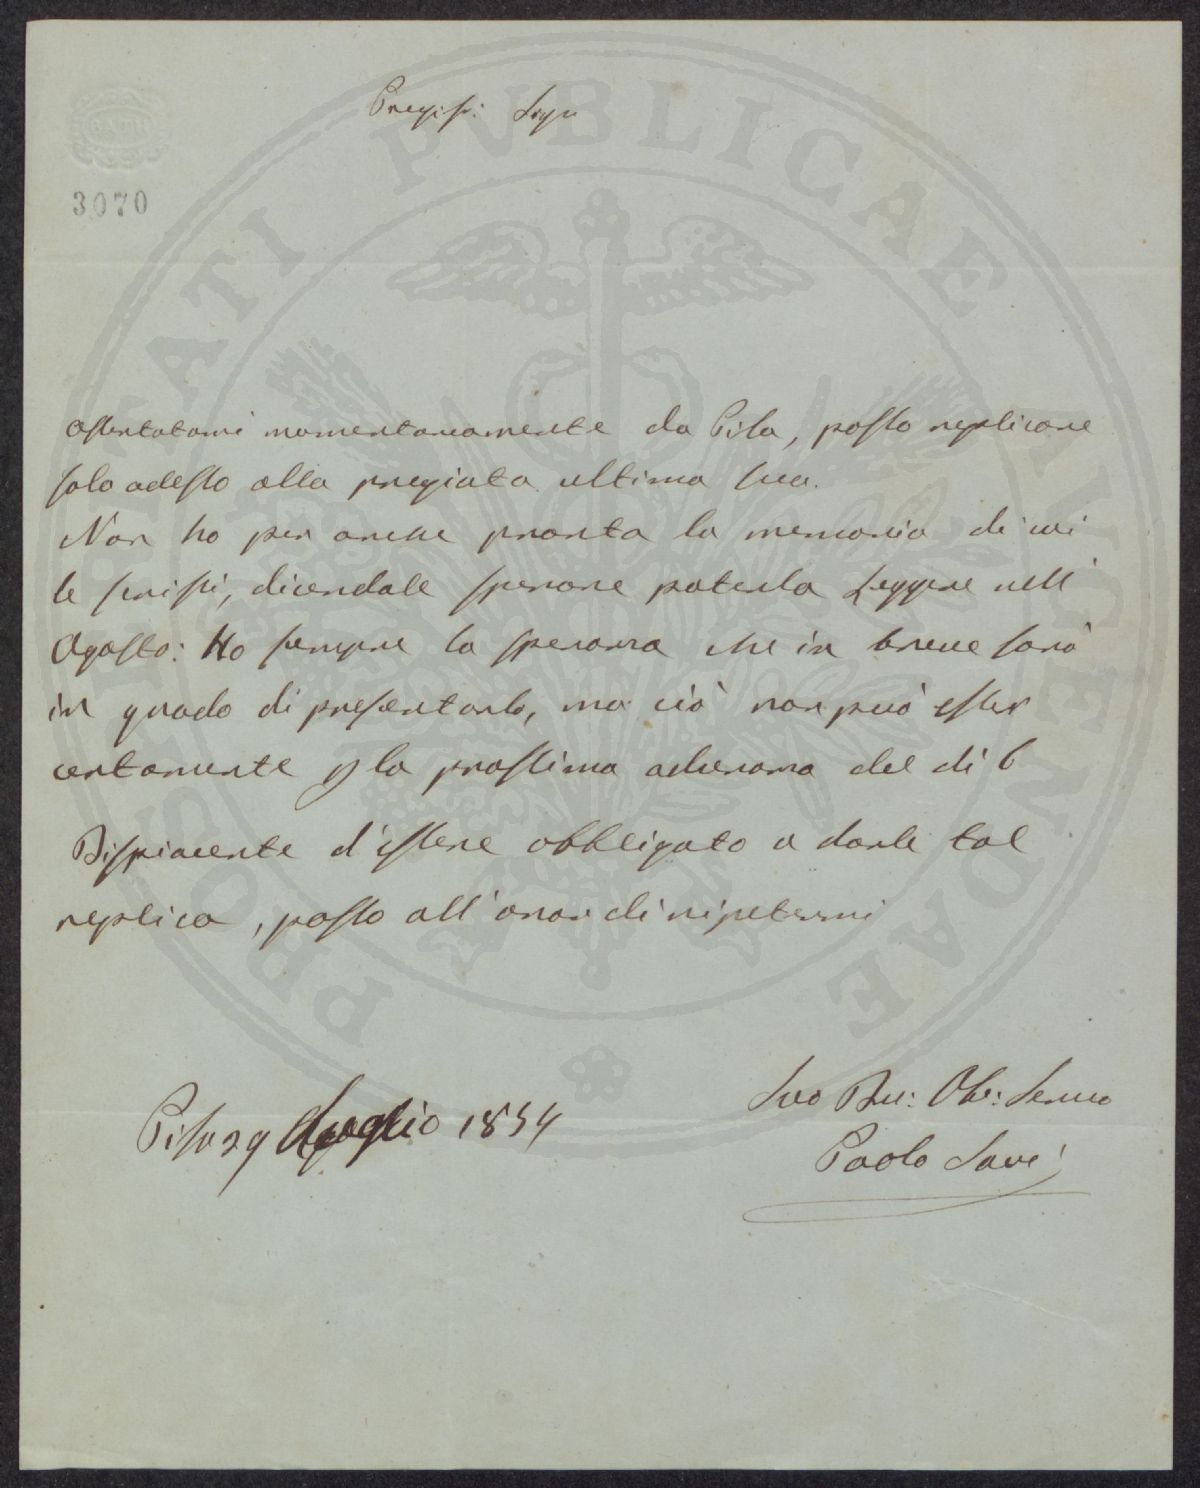 Pregis: Sign
3070
PROSPERITATI PVBLICAE AVGENDAE
Assentatomi momentaneamente da Pisa, posso replicare
solo adesso alla pregiata ultima sua.
Non ho per anche pronta la memoria di cui
le scrissi, dicendole sperare poterla leggere nell'
Agosto: Ho sempre la speranza che in breve sarò
in grado di presentarla, ma ciò non può esser
certamente p la prossima adunanza del dì 6
Dispiacente d'essere obbligato a darle tal
replica, passo all'onor di ripetermi
Suo Dev: Obb: Servo
Pisa 29 Luglio 1854
Paolo Savi